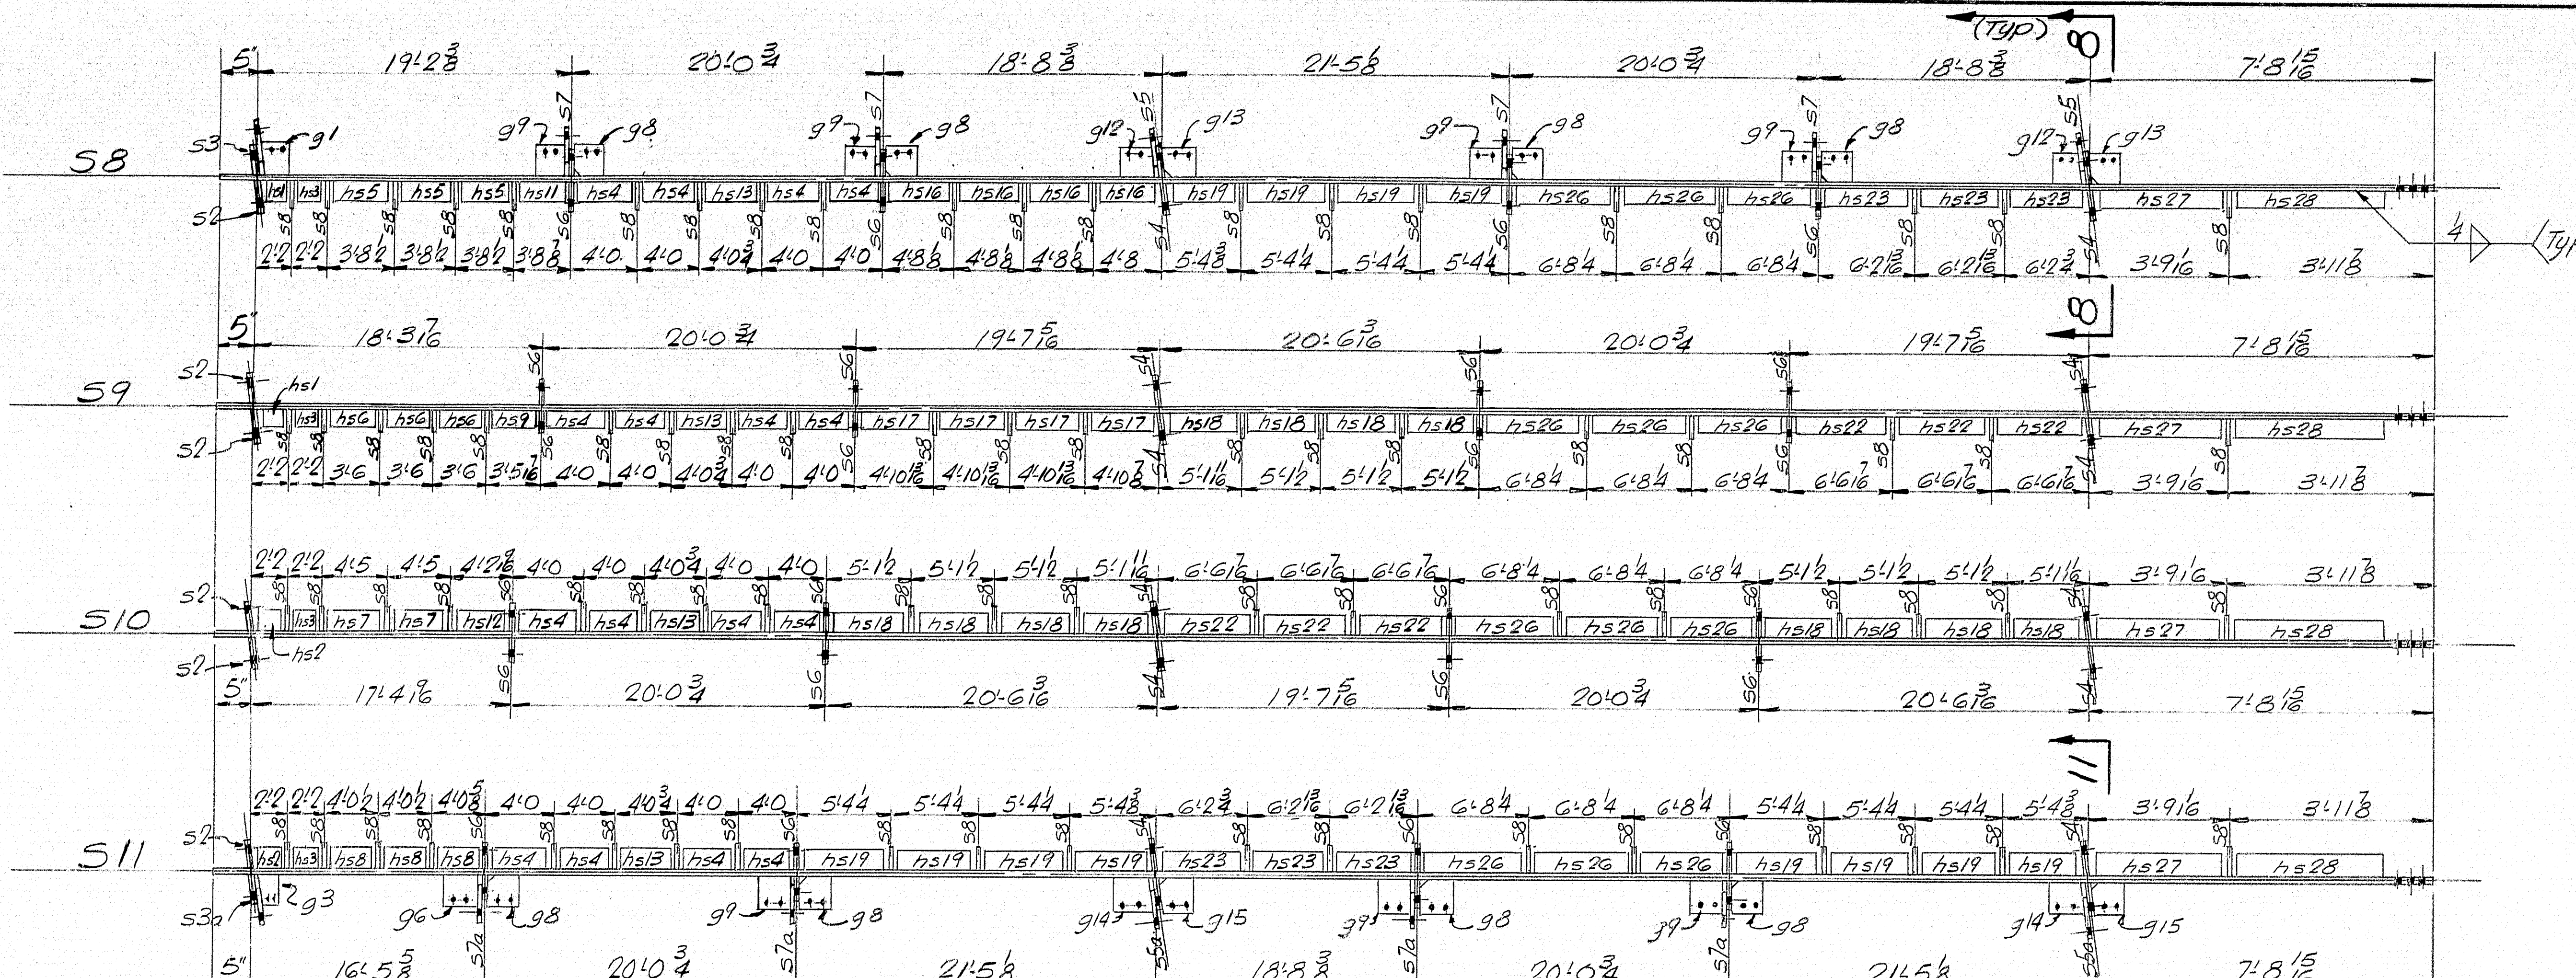 (Typ.) 8
5" 19'-2 3/8 20'-0 3/4 18'-8 3/8 21'-5 1/8 20'-0 3/4 18'-8 3/8 7'-8 15/16
s7 s7 s5 s7 s7 s5
s3 g1 g9 g8 g9 g8 g12 g13 g9 g8 g9 g8 g12 g13
S8
hs1 hs3 hs5 hs5 hs5 hs11 hs4 hs4 hs13 hs4 hs4 hs16 hs16 hs16 hs16 hs19 hs19 hs19 hs19 hs26 hs26 hs26 hs23 hs23 hs23 hs27 hs28
s2 s8 s8 s8 s8 s8 s6 s8 s8 s8 s8 s6 s8 s8 s8 s4 s8 s8 s8 s6 s8 s8 s6 s8 s8 s4 s8
2'-2 2'-2 3'-8 1/2 3'-8 1/2 3'-8 1/2 3'-8 7/8 4'-0 4'-0 4'-0 3/4 4'-0 4'-0 4'-8 1/8 4'-8 1/8 4'-8 1/8 4'-8 5'-4 3/8 5'-4 1/4 5'-4 1/4 5'-4 1/4 6'-8 1/4 6'-8 1/4 6'-8 1/4 6'-2 13/16 6'-2 13/16 6'-2 3/4 3'-9 1/16 3'-11 7/8
1/4 (Typ
8
5" 18'-3 7/16 20'-0 3/4 19'-7 5/16 20'-6 3/16 20'-0 3/4 19'-7 5/16 7'-8 15/16
s2 hs1 s6 s6 s4 s6 s6 s4
S9
hs3 hs6 hs6 hs6 hs9 hs4 hs4 hs13 hs4 hs4 hs17 hs17 hs17 hs17 hs18 hs18 hs18 hs18 hs26 hs26 hs26 hs22 hs22 hs22 hs27 hs28
s2 s8 s8 s8 s8 s8 s6 s8 s8 s8 s8 s6 s8 s8 s8 s4 s8 s8 s8 s6 s8 s8 s6 s8 s8 s4 s8
2'-2 2'-2 3'-6 3'-6 3'-6 3'-5 7/16 4'-0 4'-0 4'-0 3/4 4'-0 4'-0 4'-10 13/16 4'-10 13/16 4'-10 13/16 4'-10 7/8 5'-1 11/16 5'-1 1/2 5'-1 1/2 5'-1 1/2 6'-8 1/4 6'-8 1/4 6'-8 1/4 6'-6 7/16 6'-6 7/16 6'-6 7/16 3'-9 1/16 3'-11 7/8
2'-2 2'-2 4'-5 4'-5 4'-2 9/16 4'-0 4'-0 4'-0 3/4 4'-0 4'-0 5'-1 1/2 5'-1 1/2 5'-1 1/2 5'-1 11/16 6'-6 7/16 6'-6 7/16 6'-6 7/16 6'-8 1/4 6'-8 1/4 6'-8 1/4 5'-1 1/2 5'-1 1/2 5'-1 1/2 5'-1 11/16 3'-9 1/16 3'-11 7/8
s2 s8 s8 s8 s8 s6 s8 s8 s8 s8 s6 s8 s8 s8 s4 s8 s8 s6 s8 s8 s6 s8 s8 s8 s4 s8
S10
hs3 hs7 hs7 hs12 hs4 hs4 hs13 hs4 hs4 hs18 hs18 hs18 hs18 hs22 hs22 hs22 hs26 hs26 hs26 hs18 hs18 hs18 hs18 hs27 hs28
s2 hs2 s6 s6 s4 s6 s6 s4
5" 17'-4 9/16 20'-0 3/4 20'-6 3/16 19'-7 5/16 20'-0 3/4 20'-6 3/16 7'-8 15/16
11
2'-2 2'-2 4'-0 1/2 4'-0 1/2 4'-0 5/8 4'-0 4'-0 4'-0 3/4 4'-0 4'-0 5'-4 1/4 5'-4 1/4 5'-4 1/4 5'-4 3/8 6'-2 3/4 6'-2 13/16 6'-2 13/16 6'-8 1/4 6'-8 1/4 6'-8 1/4 5'-4 1/4 5'-4 1/4 5'-4 1/4 5'-4 3/8 3'-9 1/16 3'-11 7/8
s2 s8 s8 s8 s8 s6 s8 s8 s8 s8 s6 s8 s8 s8 s4 s8 s8 s6 s8 s8 s6 s8 s8 s8 s4 s8
S11
hs2 hs3 hs8 hs8 hs8 hs4 hs4 hs13 hs4 hs4 hs19 hs19 hs19 hs19 hs23 hs23 hs23 hs26 hs26 hs26 hs19 hs19 hs19 hs19 hs27 hs28
s3a g3 g6 g8 g9 g8 g14 g15 g9 g8 g9 g8 g14 g15
s7a s7a s5a s7a s7a s5a
5" 16'-5 5/8 20'-0 3/4 21'-5 1/8 18'-8 3/8 20'-0 3/4 21'-5 1/8 7'-8 15/16